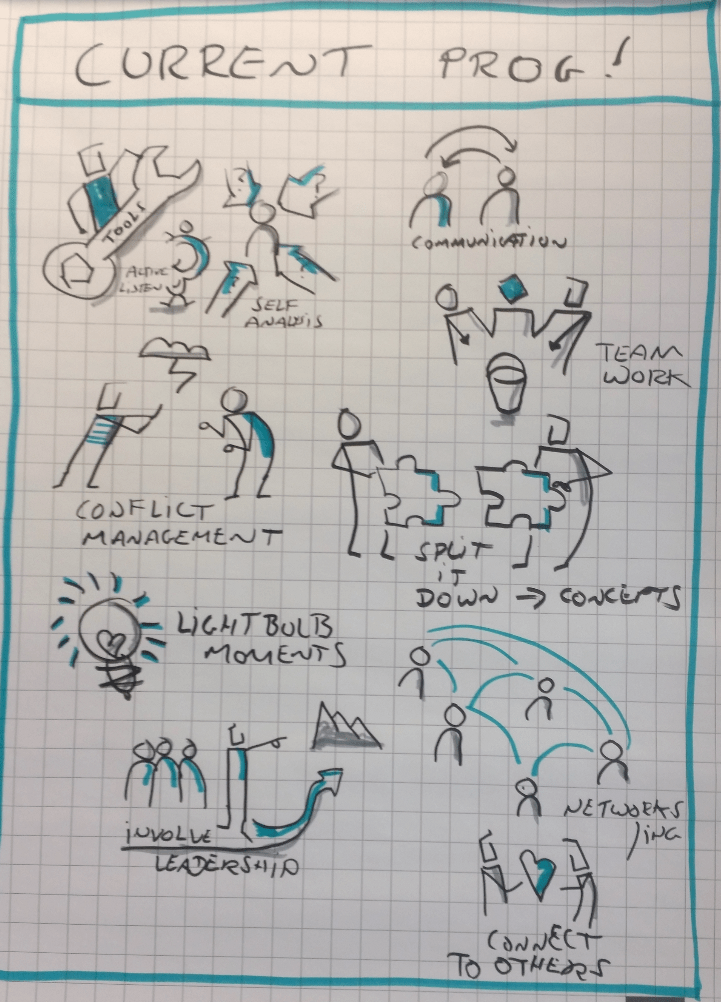 CURRENT PROG!
TOOLS
ACTIVE
LISTEN
SELF
ANALYSIS
COMMUNICATION
TEAM
WORK
CONFLICT
MANAGEMENT
SPLIT
IT
DOWN → CONCEPTS
LIGHTBULB
MOMENTS
NETWORKS
/ING
INVOLVE
LEADERSHIP
CONNECT
TO OTHERS